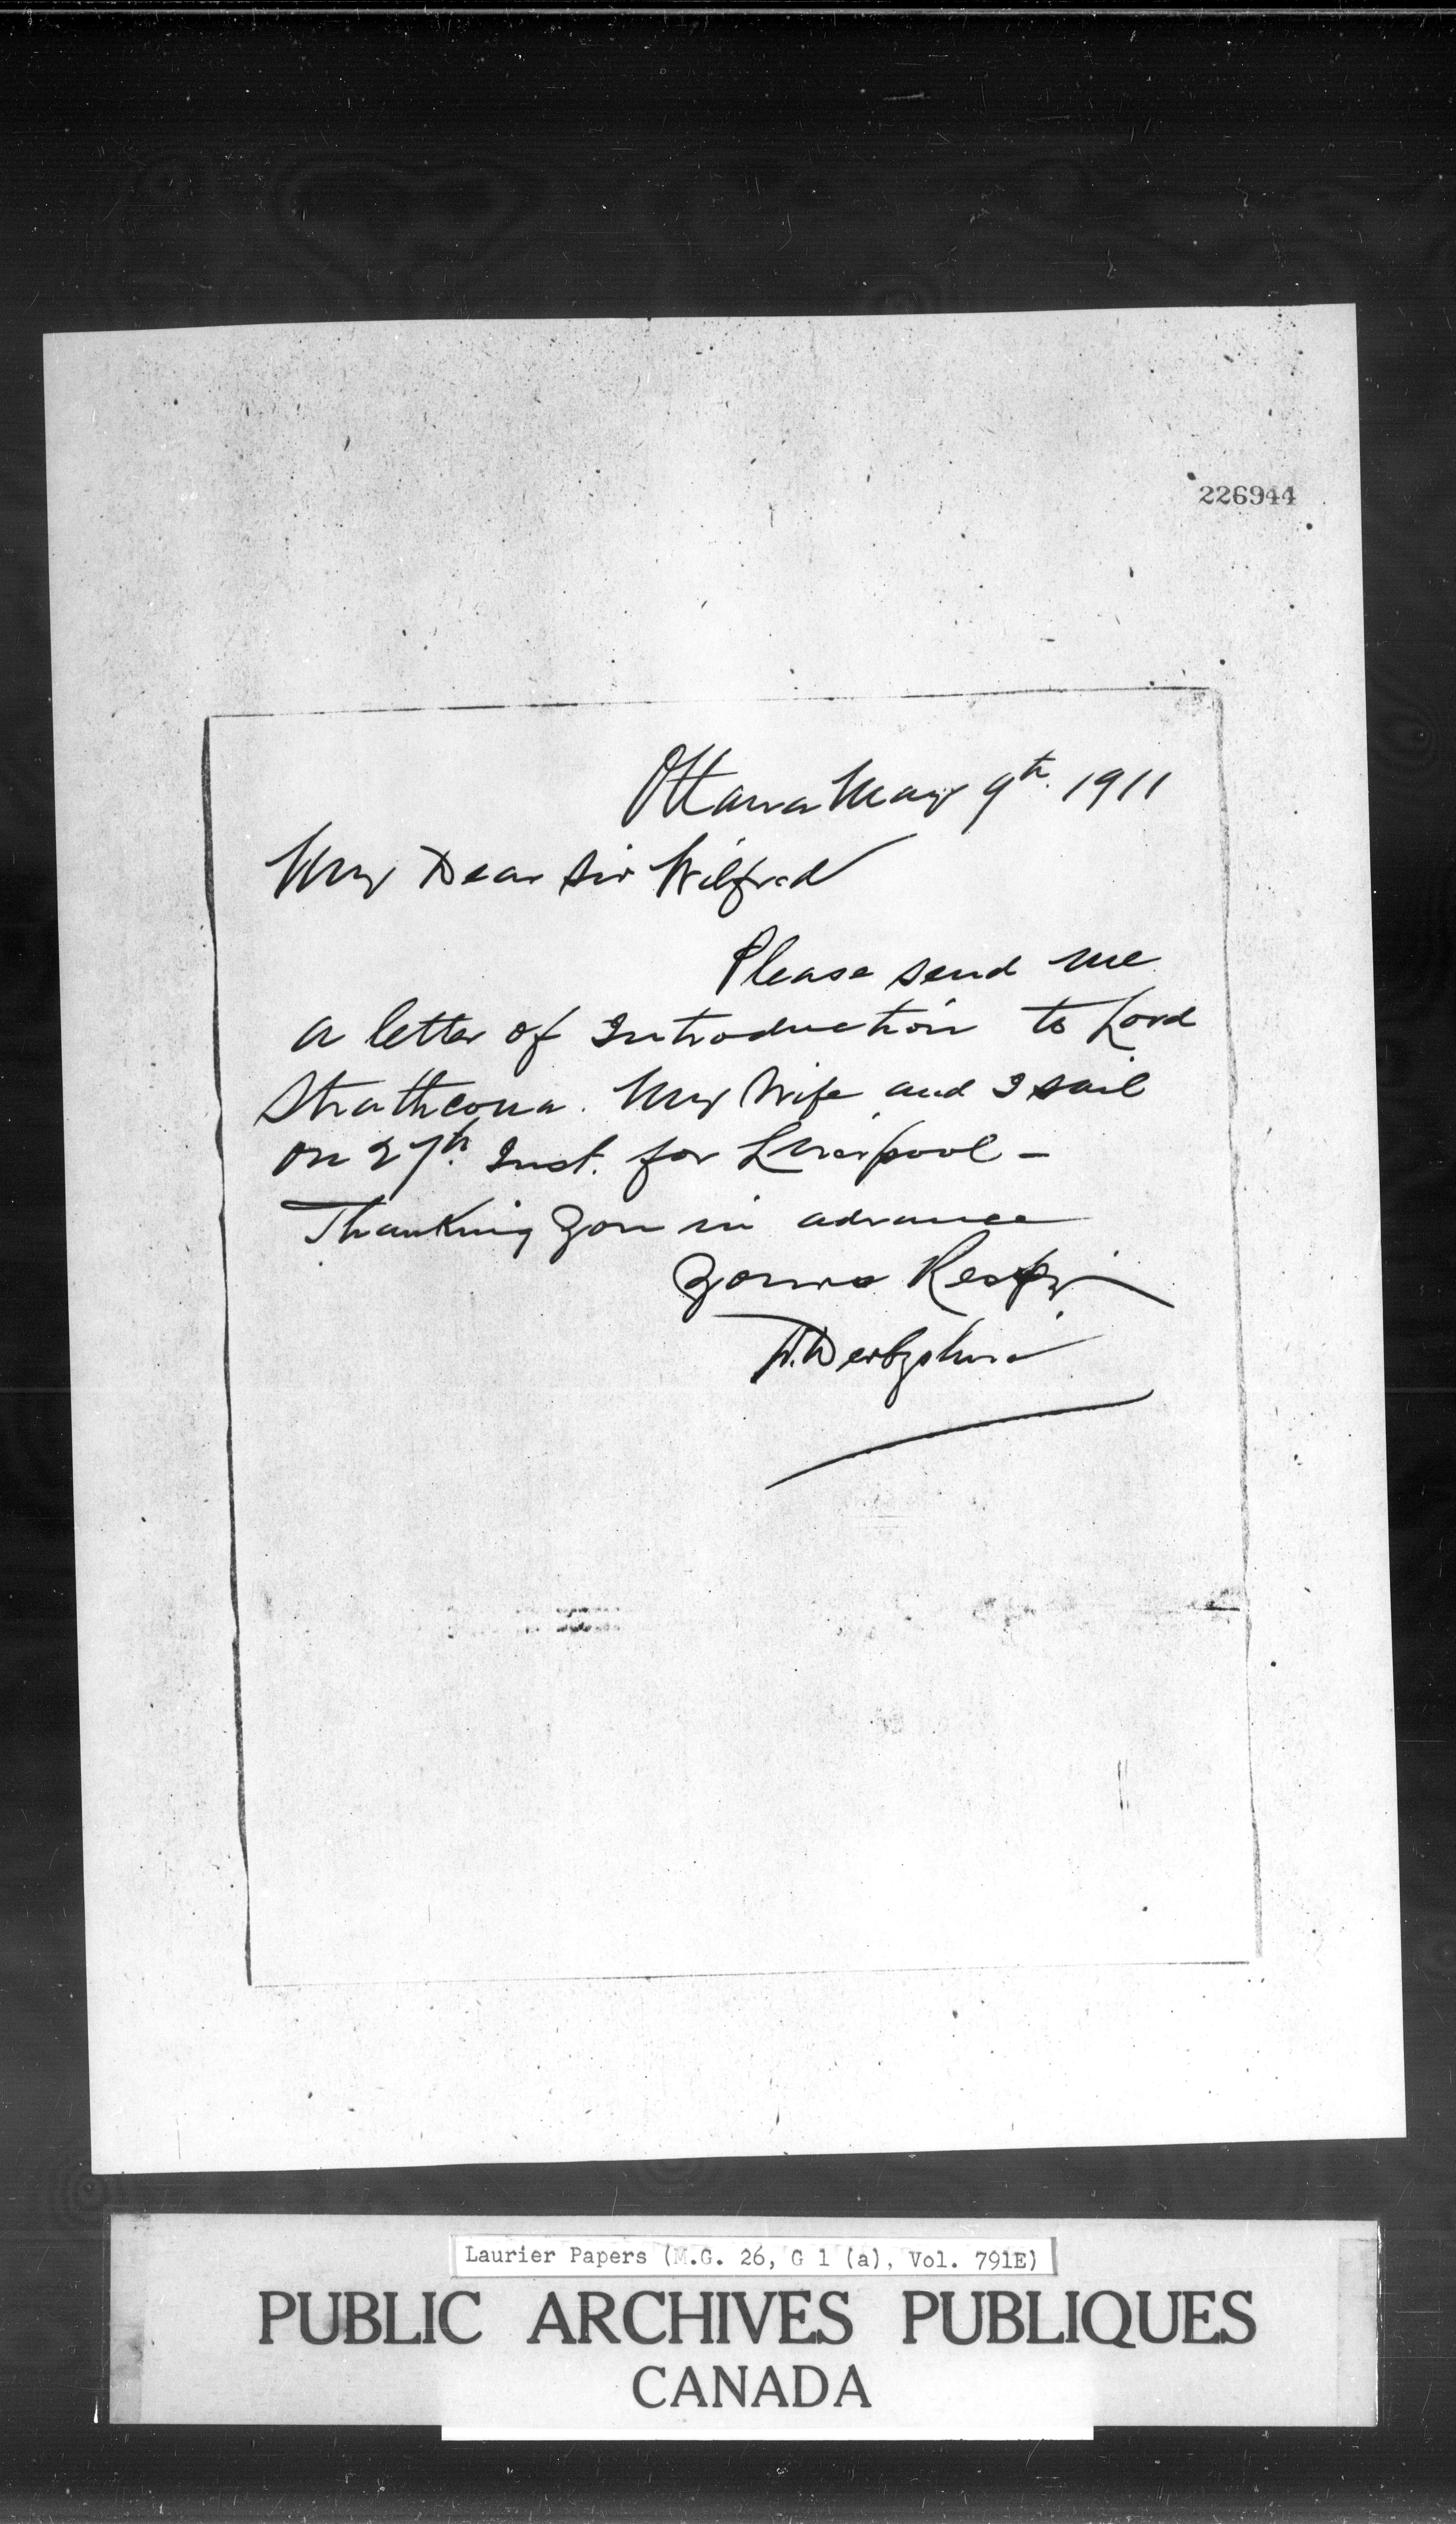 226944
Ottawa May 9th. 1911
My Dear Sir Wilfred
Please send me
a letter of Introduction to Lord
Strathcona. My Wife and I sail
on 27th. Inst. for Liverpool -
Thanking you in advance
Yours Respy
D. Derbyshire
Laurier Papers (M.G. 26, G 1 (a), Vol. 791E)
PUBLIC ARCHIVES PUBLIQUES
CANADA